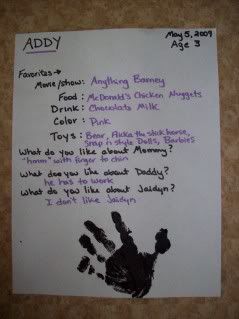 ADDY
May 5, 2009
Age 3
Favorites →
Movie/show: Anything Barney
Food: McDonald's Chicken Nuggets
Drink: Chocolate Milk
Color: Pink
Toys: Bear, the stick horse,
Snap n style Dolls, Barbies
What do you like about Mommy?
"hmm" with finger to chin
What do you like about Daddy?
he has to work
What do you like about Jaidyn?
I don't like Jaidyn